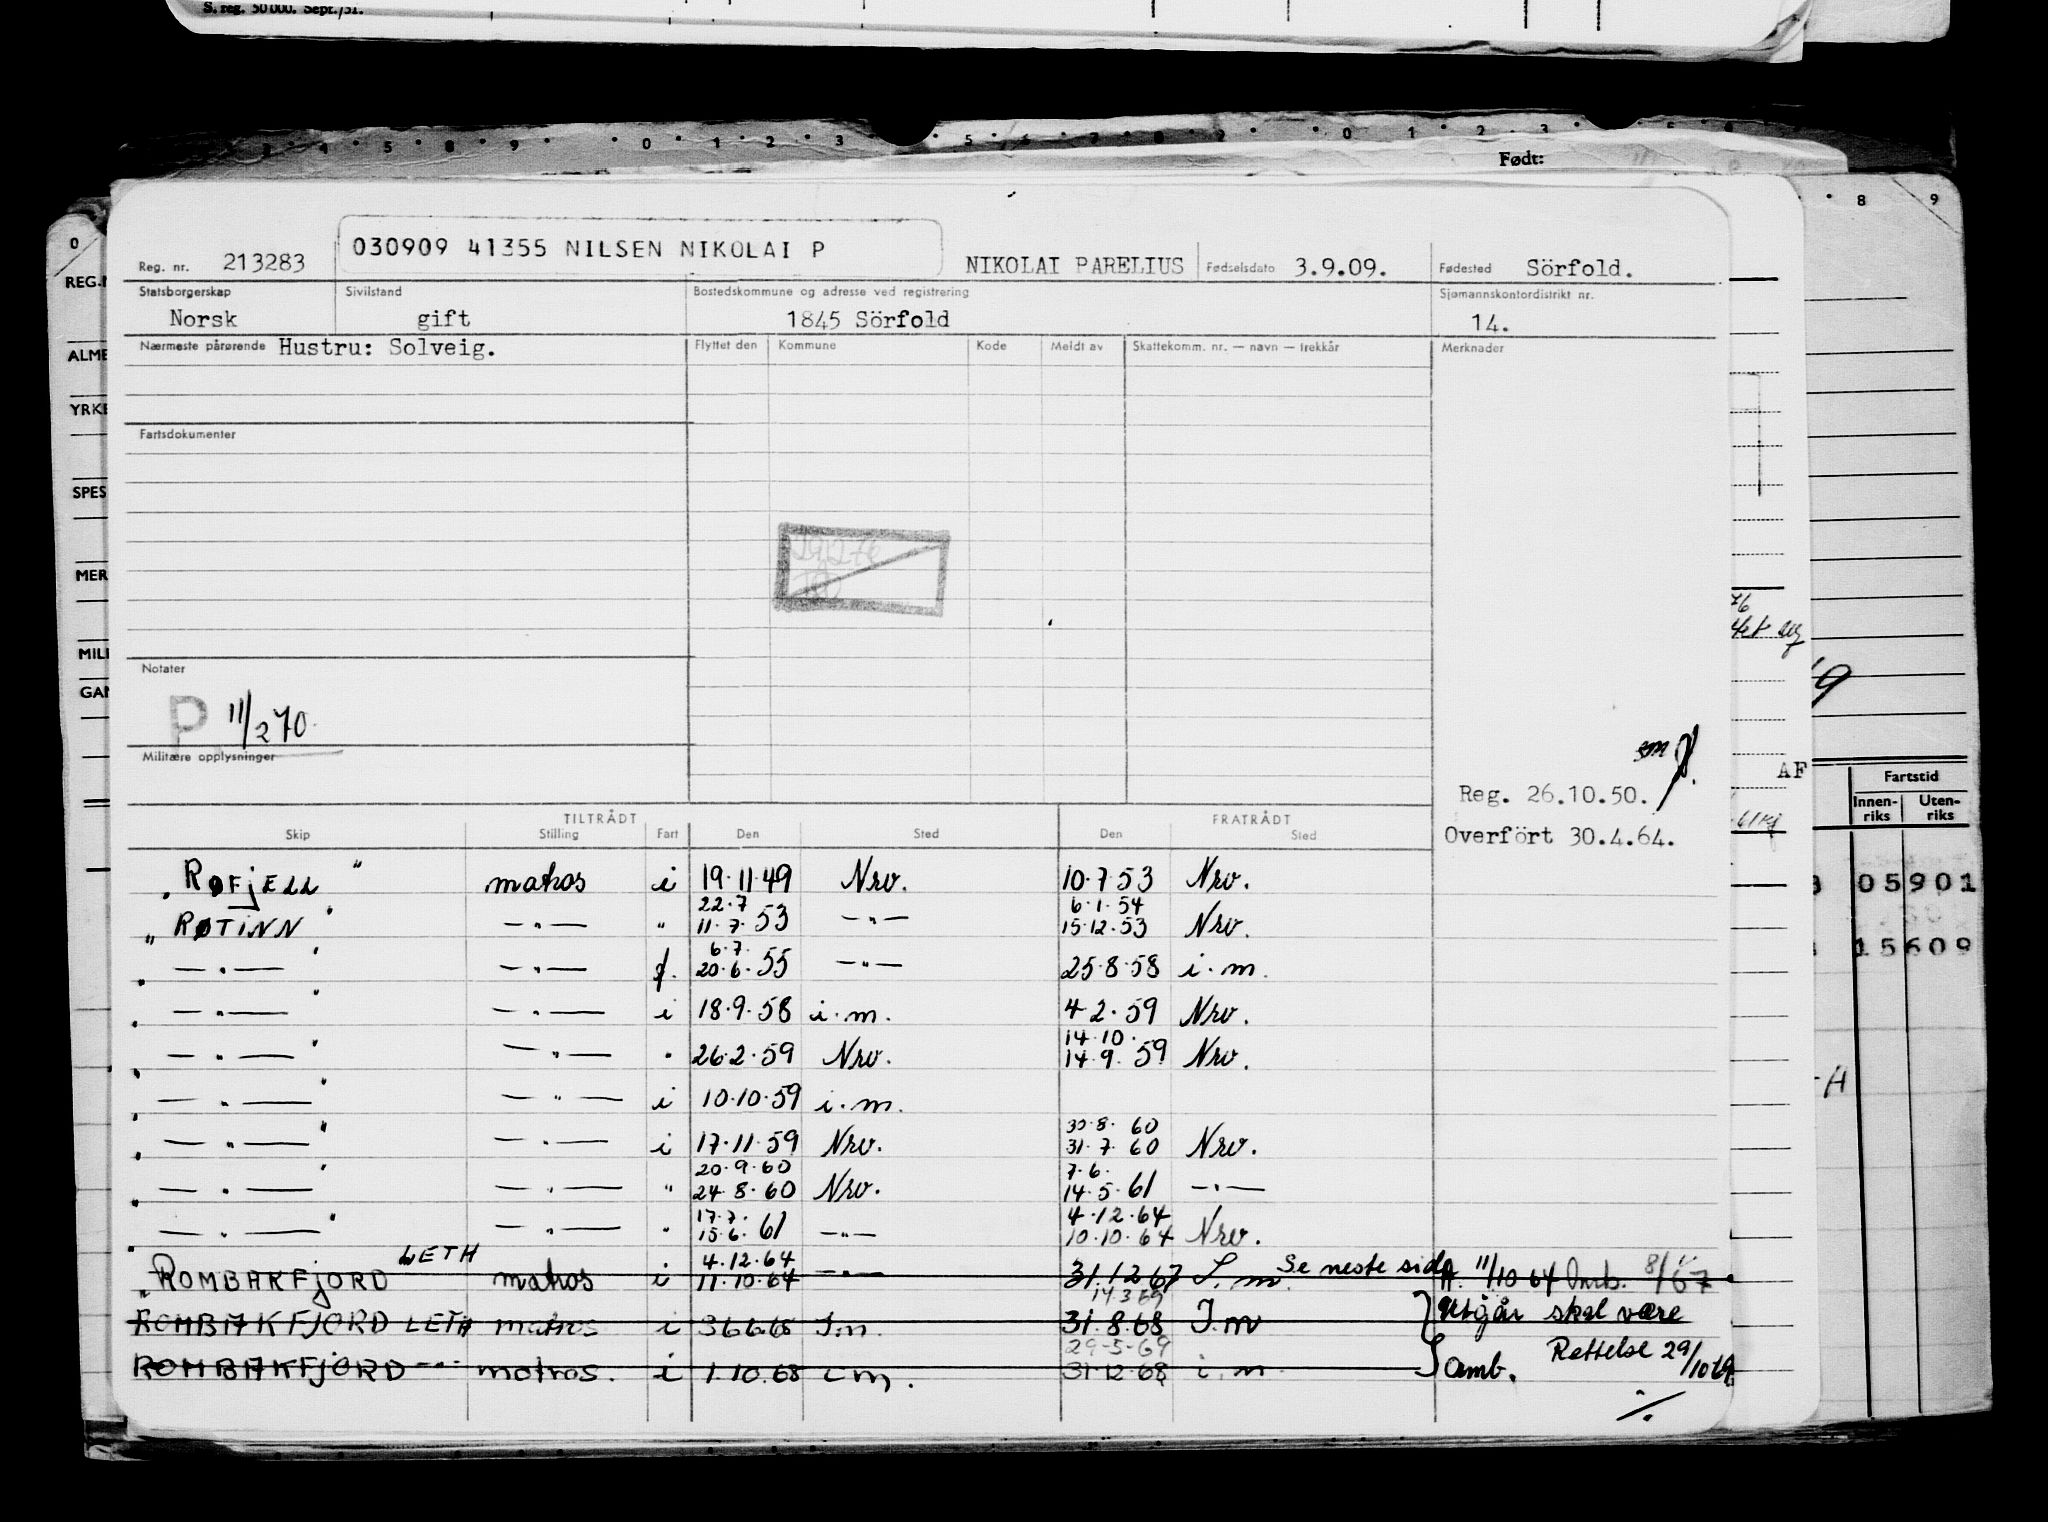 S. reg. 50 000. Sept./51.
Født:
Reg. nr. 213283 030909 41355 NILSEN NIKOLAI P NIKOLAI PARELIUS Fødselsdato 3.9.09. Fødested Sörfold.
Statsborgerskap Sivilstand Bostedskommune og adresse ved registrering Sjømannskontordistrikt nr.
Norsk gift 1845 Sörfold 14.
Nærmeste pårørende Hustru: Solveig. Flyttet den Kommune Kode Meldt av Skattekomm. nr. — navn — trekkår Merknader
Fartsdokumenter
Notater
P 11/2 70.
Militære opplysninger
Reg. 26.10.50.
Overfört 30.4.64.
TILTRÅDT FRATRÅDT
Skip Stilling Fart Den Sted Den Sted
"RØFJELL" matros i 19.11.49 Nrv. 10.7.53 Nrv.
22.7 6.1.54
"RØTINN" —"— " 11.7.53 —"— 15.12.53 Nrv.
6.7.
"—"—" —"— f. 20.6.55 —"— 25.8.58 i.m.
"—"—" —"— i 18.9.58 i.m. 4.2.59 Nrv.
14.10.
"—"—" —"— " 26.2.59 Nrv. 14.9.59 Nrv.
"—"—" —"— i 10.10.59 i.m.
30.8.60
"—"—" —"— i 17.11.59 Nrv. 31.7.60 Nrv.
20.9.60 7.6.
"—"—" —"— " 24.8.60 Nrv. 14.5.61 —"—
17.7. 4.12.64
"—"—" —"— " 15.6.61 —"— 10.10.64 Nrv.
LETH 4.12.64
"ROMBAKFJORD matros i 11.10.64 —"— 31.12.67 I.m. Se neste side 11/10 64 Omb. 8/ 67
14 3 69
ROMBAKFJORD LETH matros i I.m. 31.8.68 I.m Utgår skal være
29-5-69
ROMBAKFJORD —"— matros. i 1.10.68 i m. 31.12.68 i.m. amb. Rettelse 29/10 69
./.
REG.N
ALME
YRKE
SPES
MER
MILI
GAN
AF
Fartstid
Innen-riks Uten-riks
05901
15609